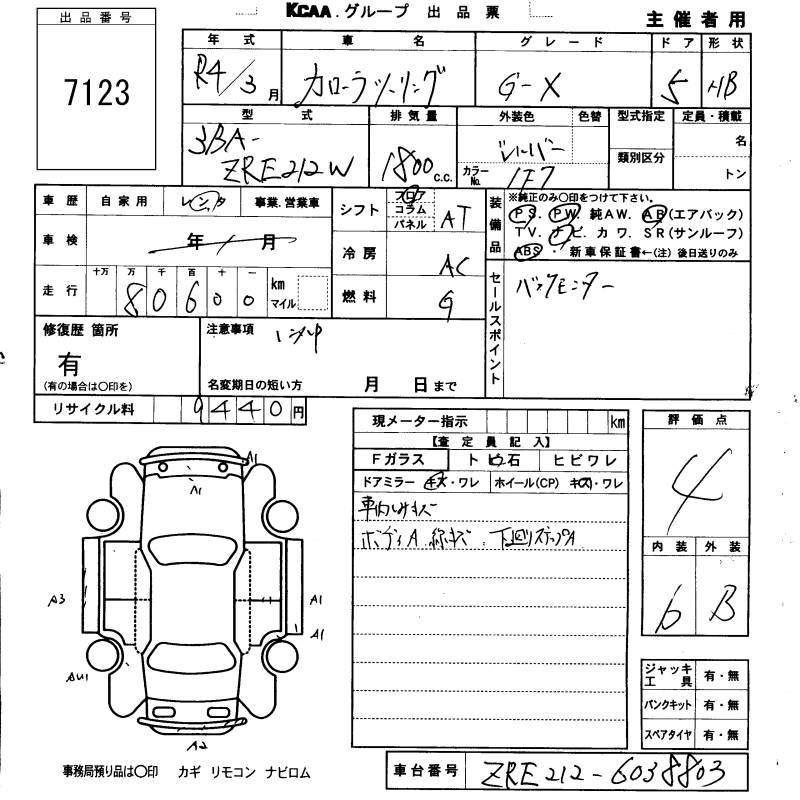 KCAA. グループ 出品票
主催者用
出品番号
7123
年式 車名 グレード ドア 形状
R4/3月 カローラツーリング G-X 5 HB
型式 排気量 外装色 色替 型式指定 定員・積載
3BA-
ZRE212W 1800c.c. シルバー
カラーNo. 1F7 類別区分 名
トン
車歴 自家用 レンタ 事業.営業車
車検 年 月
走行 十万 万 千 百 十 一
80600 km マイル
シフト フロア コラム パネル AT
冷房 AC
燃料 G
装備品
※純正のみ〇印をつけて下さい。
PS. PW. 純AW. AB(エアバック)
TV. ナビ. カワ. SR(サンルーフ)
ABS ・ 新車保証書←(注) 後日送りのみ
セールスポイント
バックモニター
修復歴 箇所
有
(有の場合は〇印を)
注意事項
名変期日の短い方 月 日まで
リサイクル料 9440円
現メーター指示 km
【査定員記入】
Fガラス トビ石 ヒビワレ
ドアミラー キズ・ワレ ホイール(CP) キズ・ワレ
車内シミキズ
ボディA 線キズ、下廻りステップA
評価点
4
内装 外装
6 B
A1
A1
A3
A1
A1
AU1
A2
ジャッキ工具 有・無
パンクキット 有・無
スペアタイヤ 有・無
事務局預り品は〇印 カギ リモコン ナビロム
車台番号 ZRE212-6038803